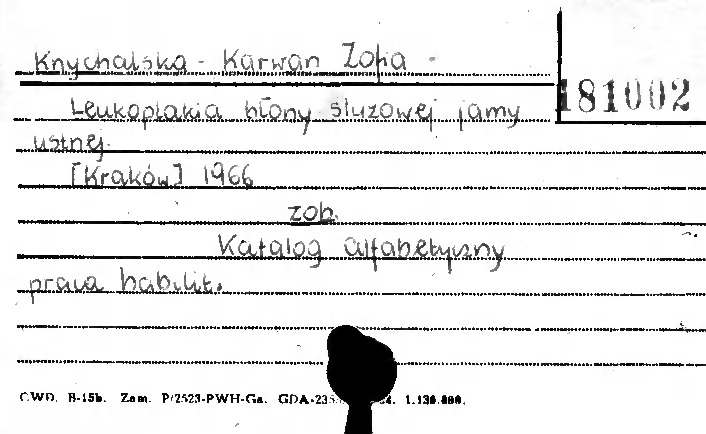 Knychalska - Karwan Zofia
181002
Leukoplakia błony śluzowej jamy
ustnej.
[Kraków] 1966
zob.
Katalog alfabetyczny
praca habilit.
CWD. B-15b. Zam. P/2523-PWH-Ga. GDA-235 1.130.000.